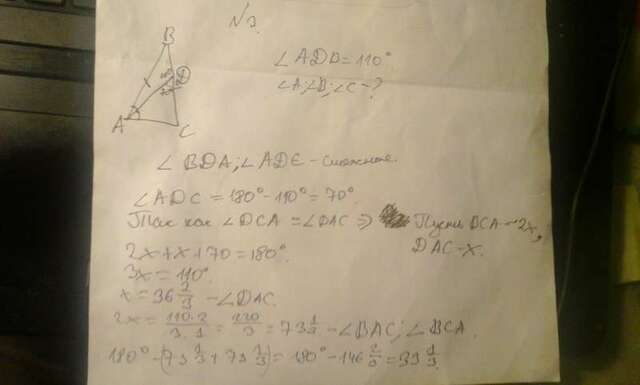 N 3.
B
∠ADB = 110°.
∠A; ∠B; ∠C - ?
110°
D
70°
A
C
∠BDA; ∠ADC - смежные.
∠ADC = 180° - 110° = 70°.
Так как ∠DCA = ∠DAC ⇒ Пусть BCA - 2x,
DAC - x.
2x + x + 70 = 180°.
3x = 110°.
x = 36 2/3 - ∠DAC.
2x = 110·2/3·1 = 220/3 = 73 1/3 - ∠BAC; ∠BCA.
180° - (73 1/3 + 73 1/3) = 180° - 146 2/3 = 33 1/3.